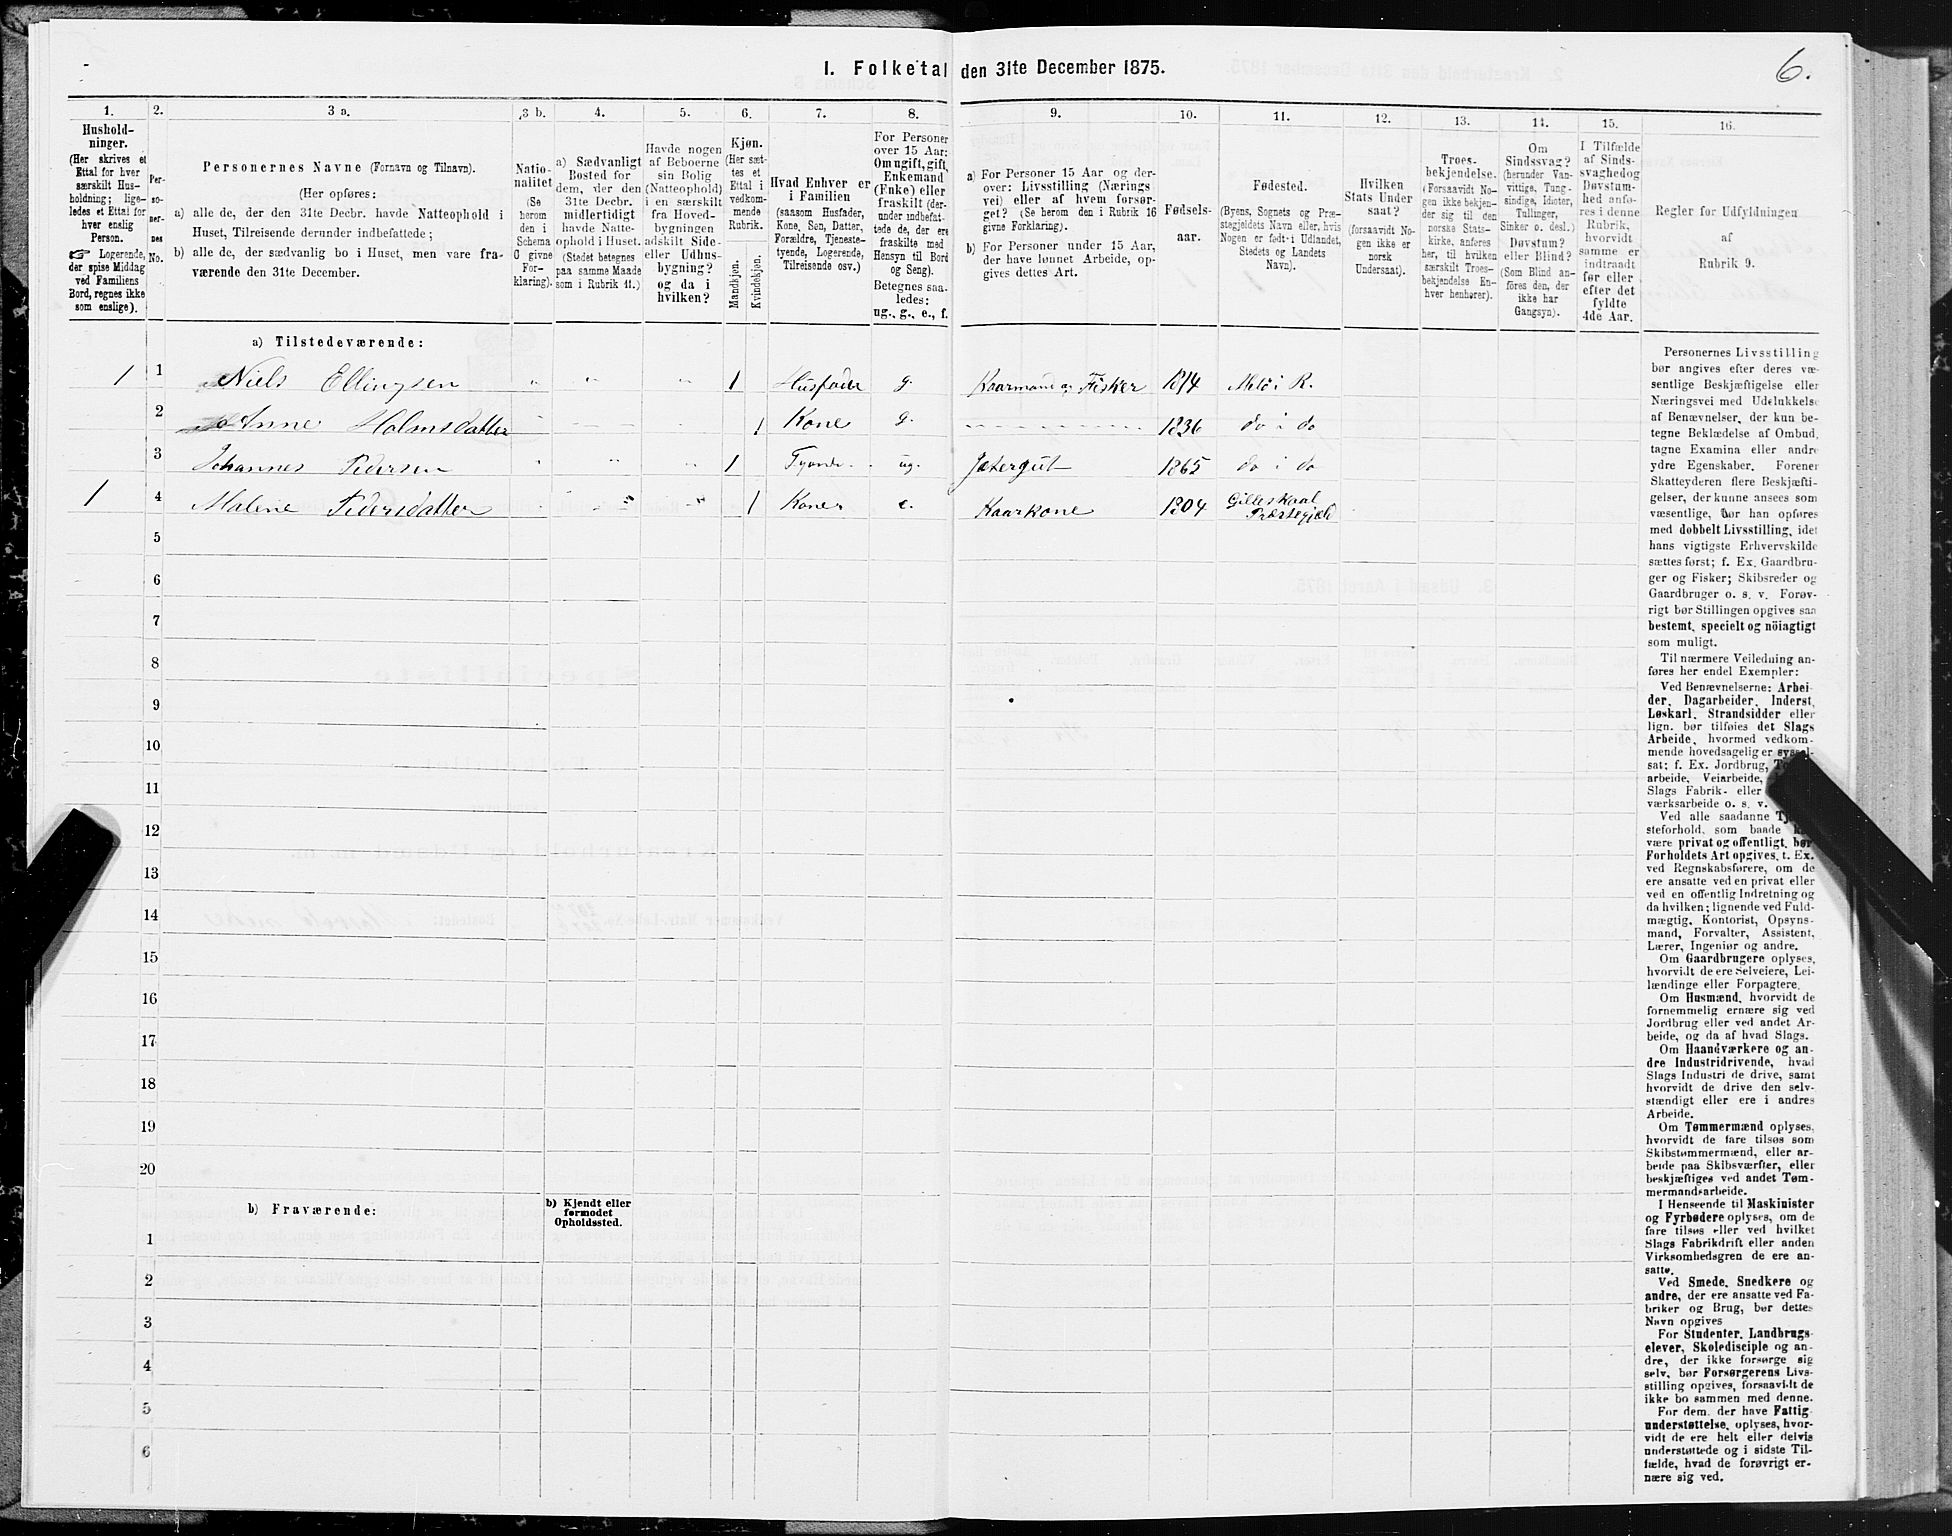 6.
I. Folketal den 31te December 1875.
1. 2. 3 a. 3 b. 4. 5. 6. 7. 8. 9. 10. 11. 12. 13. 14. 15. 16.
Hushold-
ninger.
(Her skrives et
Ettal for hver
særskilt Hus-
holdning; lige-
ledes et Ettal for
hver enslig
Person.
☞ Logerende,
der spise Middag
ved Familiens
Bord, regnes ikke
som enslige).
Per-
so-
ner-
nes
No.
Personernes Navne (Fornavn og Tilnavn).
(Her opføres:
a) alle de, der den 31te Decbr. havde Natteophold i
Huset, Tilreisende derunder indbefattede;
b) alle de, der sædvanlig bo i Huset, men vare fra-
værende den 31te December.
Natio-
nalitet
(Se
herom
den i
Schema
O givne
For-
klaring).
a) Sædvanligt
Bosted for
dem, der den
31te Decbr.
midlertidigt
havde Natte-
ophold i Huset.
(Stedet betegnes
paa samme Maade
som i Rubrik 11.)
Havde nogen
af Beboerne
sin Bolig
(Natteophold)
i en særskilt
fra Hoved-
bygningen
adskilt Side-
eller Udhus-
bygning?
og da i
hvilken?
Kjøn.
(Her sæt-
tes et
Ettal i
vedkom-
mende
Rubrik.
Mandkjøn.
Kvindekjøn.
Hvad Enhver er
i Familien
(saasom Husfader,
Kone, Søn, Datter,
Forældre, Tjeneste-
tyende, Logerende,
Tilreisende osv.)
For Personer
over 15 Aar:
Om ugift, gift,
Enkemand
(Enke) eller
fraskilt (der-
under indbefat-
tede de, der ere
fraskilte med
Hensyn til Bord
og Seng).
Betegnes saa-
ledes:
ug., g., e., f.
a) For Personer 15 Aar og der-
over: Livsstilling (Nærings
vei) eller af hvem forsør-
get? (Se herom den i Rubrik 16
givne Forklaring).
b) For Personer under 15 Aar,
der have lønnet Arbeide, op-
gives dettes Art.
Fødsels-
aar.
Fødested.
(Byens, Sognets og Præ-
stegjeldets Navn eller, hvis
Nogen er født i Udlandet,
Stedets og Landets
Navn).
Hvilken
Stats Under
saat?
(forsaavidt No-
gen ikke er
norsk
Undersaat).
Troes-
bekjendelse.
(Forsaavidt No-
gen ikke bekjen-
der sig til den
norske Stats-
kirke, anføres
her, til hvilken
særskilt Troes-
bekjendelse En-
hver henhører).
Om
Sindssvag?
(herunder Van-
vittige, Tung-
sindige, Idioter,
Tullinger,
Sinker o. desl.)
Døvstum?
eller Blind?
(Som Blind an-
føres den, der
ikke har
Gangsyn).
I Tilfælde
af Sinds-
svaghed og
Døvstum-
hed anfø-
res i denne
Rubrik,
hvorvidt
samme er
indtraadt
før eller
efter det
fyldte
4de Aar.
Regler for Udfyldningen
af
Rubrik 9.
a) Tilstedeværende:
1 1 Niels Ellingsen 1 Husfader g. Kaarmand og Fisker 1814 Melö i R.
2 Anne Holmsdatter 1 Kone g. 1836 do i do
3 Johannes Pedersen 1 Tyende ug. Jætergut 1865 do i do
1 4 Malene Pedersdatter 1 Kone e. Kaarkone 1804 Gilleskaal Præstegjæld
5
6
7
8
9
10
11
12
13
14
15
16
17
18
19
20
b) Fraværende:
b) Kjendt eller
formodet
Opholdssted.
1
2
3
4
5
6
Personernes Livsstilling
bør angives efter deres væ-
sentlige Beskjæftigelse eller
Næringsvei med Udelukkelse
af Benævnelser, der kun be-
tegne Beklædelse af Ombud,
tagne Examina eller andre
ydre Egenskaber. Forener
Skatteyderen flere Beskjæfti-
gelser, der kunne ansees som
væsentlige, bør han opføres
med dobbelt Livsstilling, idet
hans vigtigste Erhvervskilde
sættes først; f. Ex. Gaardbru-
ger og Fisker; Skibsreder og
Gaardbruger o. s. v. Forøv-
rigt bør Stillingen opgives saa
bestemt, specielt og nöiagtigt
som muligt.
Til nærmere Veiledning an-
føres her endel Exempler:
Ved Benævnelserne: Arbei
der, Dagarbeider, Inderst,
Løskarl, Strandsidder eller
lign. bør tilføies det Slags
Arbeide, hvormed vedkom-
mende hovedsagelig er syssel-
sat; f. Ex. Jordbrug,
arbeide, Veiarbeide,
Slags Fabrik- eller
værksarbeide o. s. v.
Ved alle saadanne
steforhold, som baade
være privat og offentligt, bør
Forholdets Art opgives, t. Ex.
ved Regnskabsførere, om de
ere ansatte ved en privat eller
ved en offentlig Indretning og
da hvilken; lignende ved Fuld-
mægtig, Kontorist, Opsyns-
mand, Forvalter, Assistent,
Lærer, Ingeniør og andre.
Om Gaardbrugere oplyses,
hvorvidt de ere Selveiere, Lei-
lændinge eller Forpagtere.
Om Husmænd, hvorvidt de
fornemmelig ernære sig ved
Jordbrug eller ved andet Ar-
beide, og da af hvad Slags.
Om Haandværkere og an-
dre Industridrivende, hvad
Slags Industri de drive, samt
hvorvidt de drive den selv-
stændigt eller ere i andres
Arbeide.
Om Tømmermænd oplyses,
hvorvidt de fare tilsøs som
Skibstømmermænd, eller ar-
beide paa Skibsværfter, eller
beskjæftiges ved andet Tøm-
mermandsarbeide.
I Henseende til Maskinister
og Fyrbødere oplyses, om de
fare tilsøs eller ved hvilket
Slags Fabrikdrift eller anden
Virksomhedsgren de ere an-
satte.
Ved Smede, Snedkere og
andre, der ere ansatte ved Fa-
briker og Brug, bør dettes
Navn opgives
For Studenter, Landbrugs-
elever, Skoledisciple og an-
dre, der ikke forsørge sig
selv, bør Forsørgerens Livs-
stilling opgives, forsaavidt de
ikke bo sammen med denne.
For dem, der have Fattig-
understøttelse, oplyses, hvor-
vidt de ere helt eller delvis
understøttede og i sidste Til-
fælde, hvad de forøvrigt er-
nære sig ved.